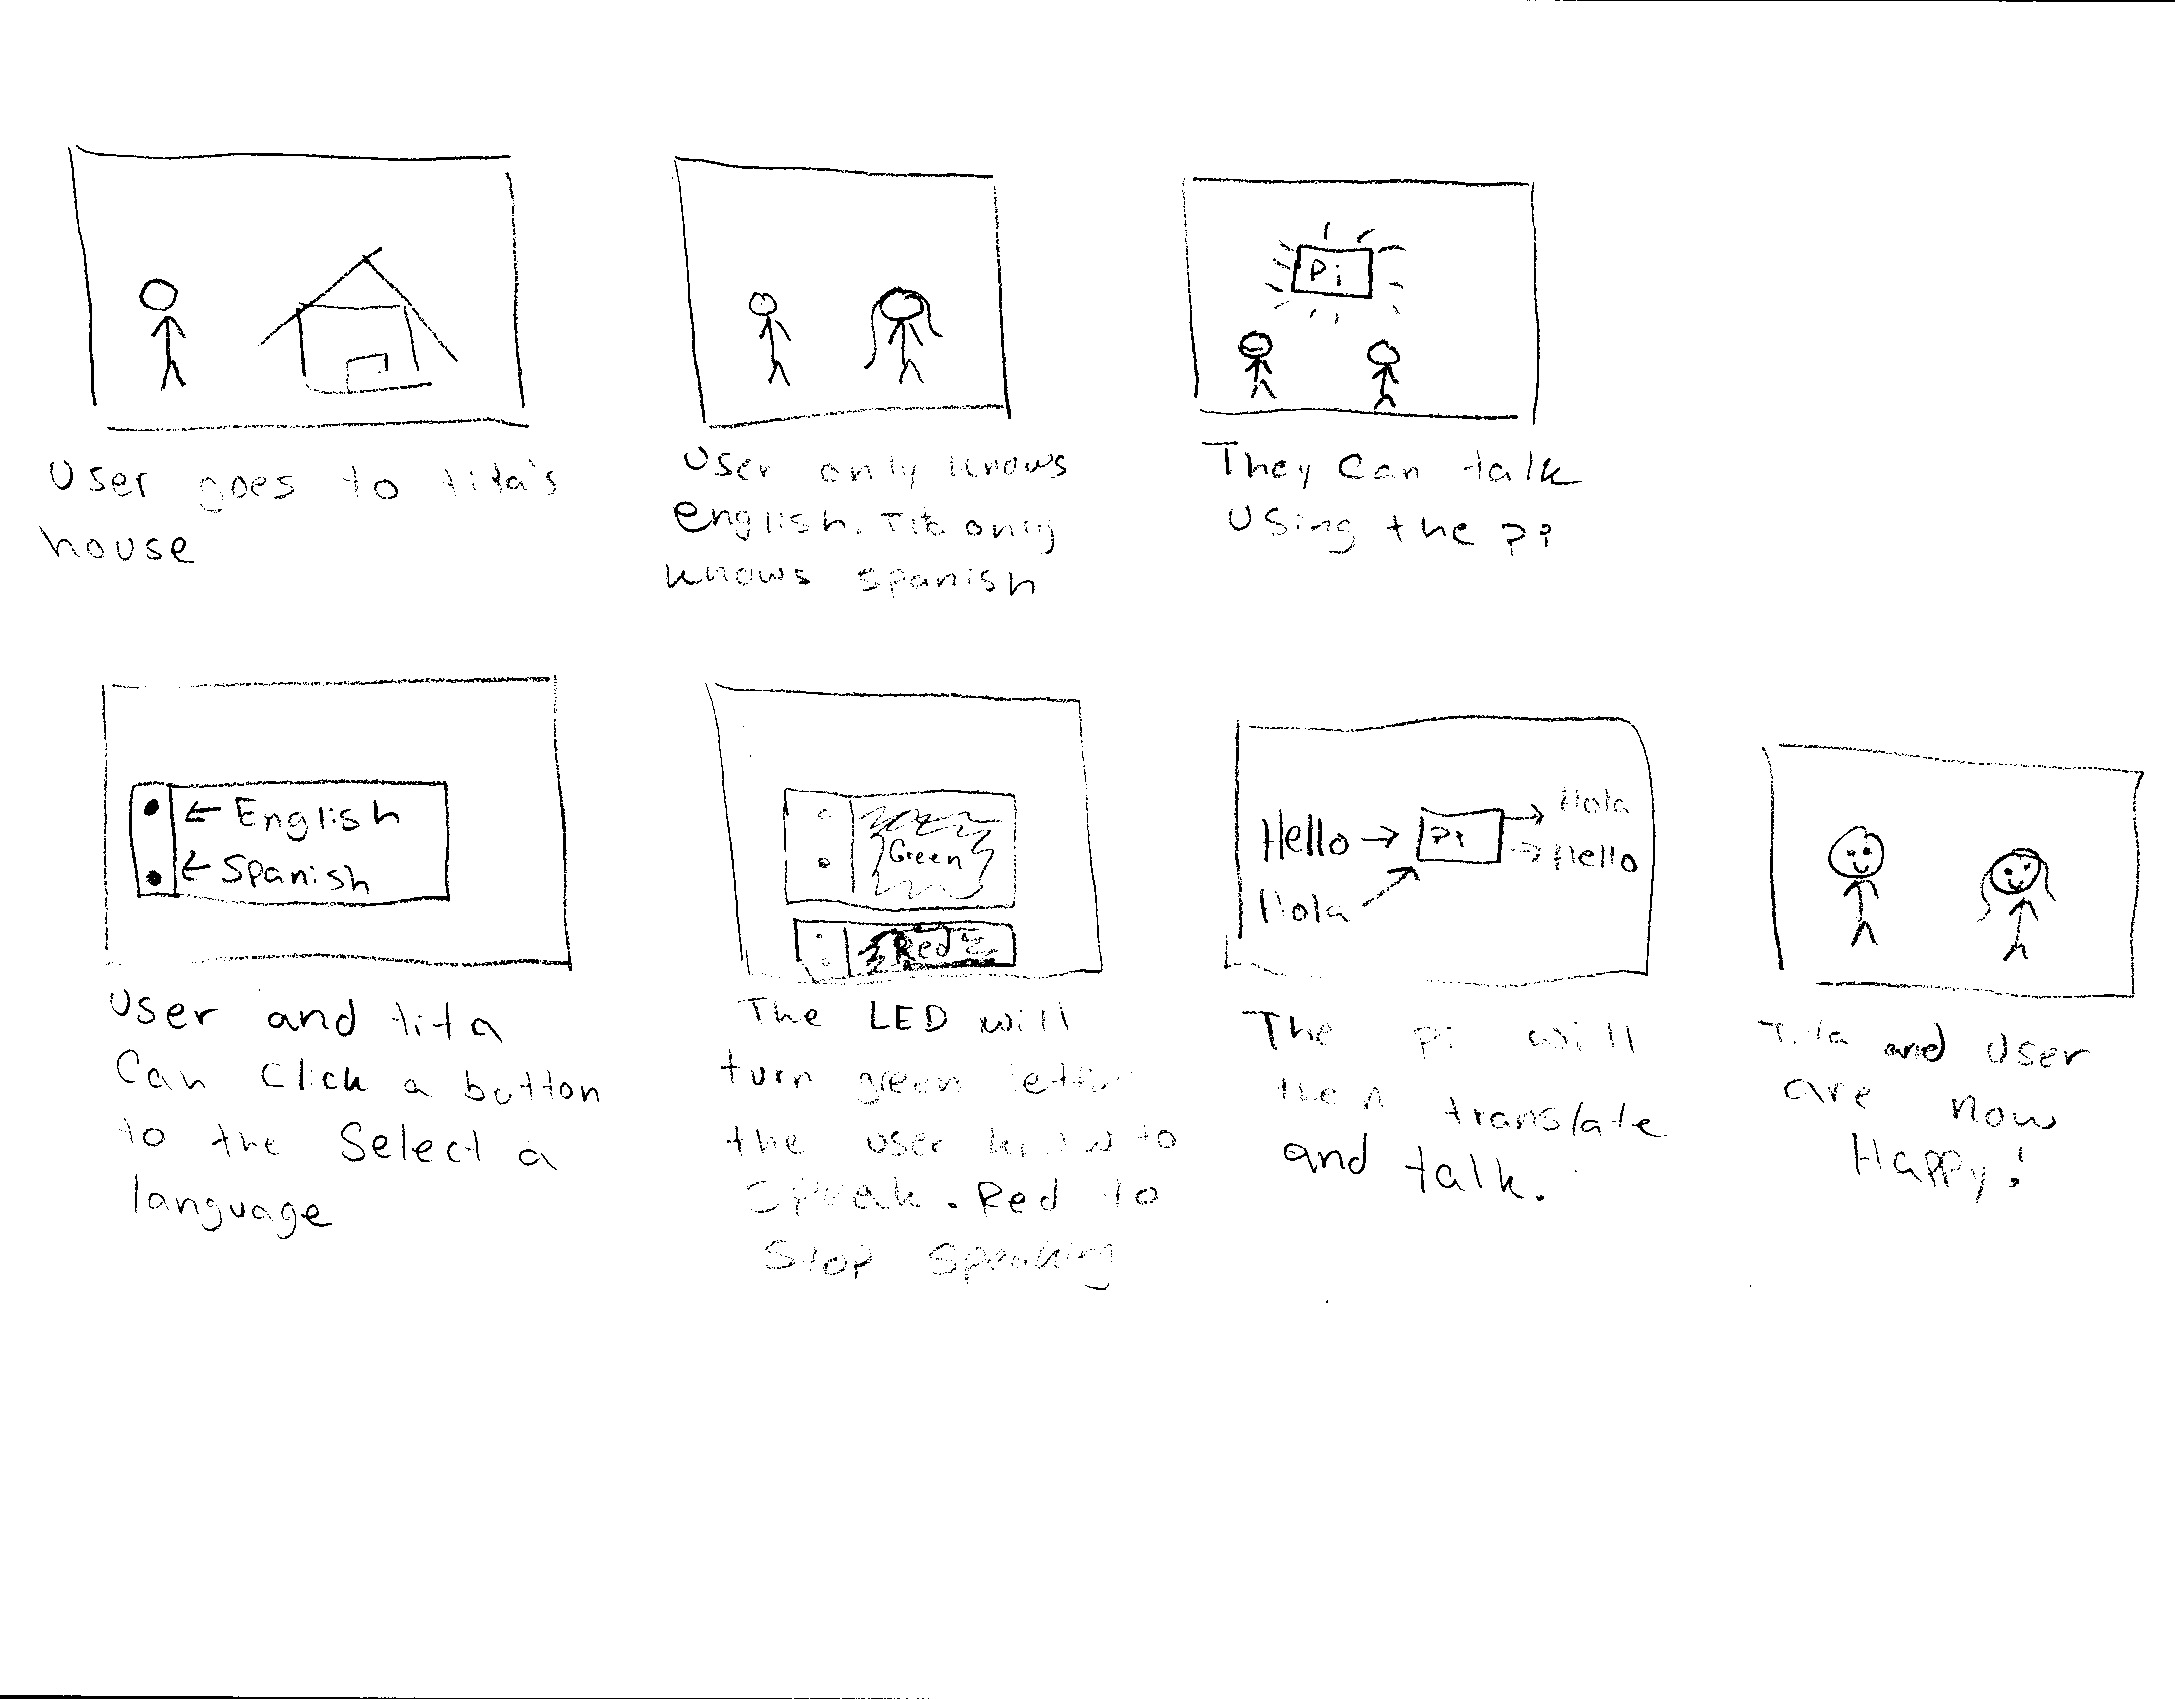 User goes to tita's
house
User only knows
english. Tita only
knows spanish
Pi
They can talk
using the Pi
← English
← Spanish
User and tita
Can Click a button
to the Select a
language
Green
Red
The LED will
turn green letting
the user know to
speak. Red to
Stop speaking
Hello → Pi → Hola
→ Hello
Hola
The pi will
then translate
and talk.
Tita and User
are now
Happy!